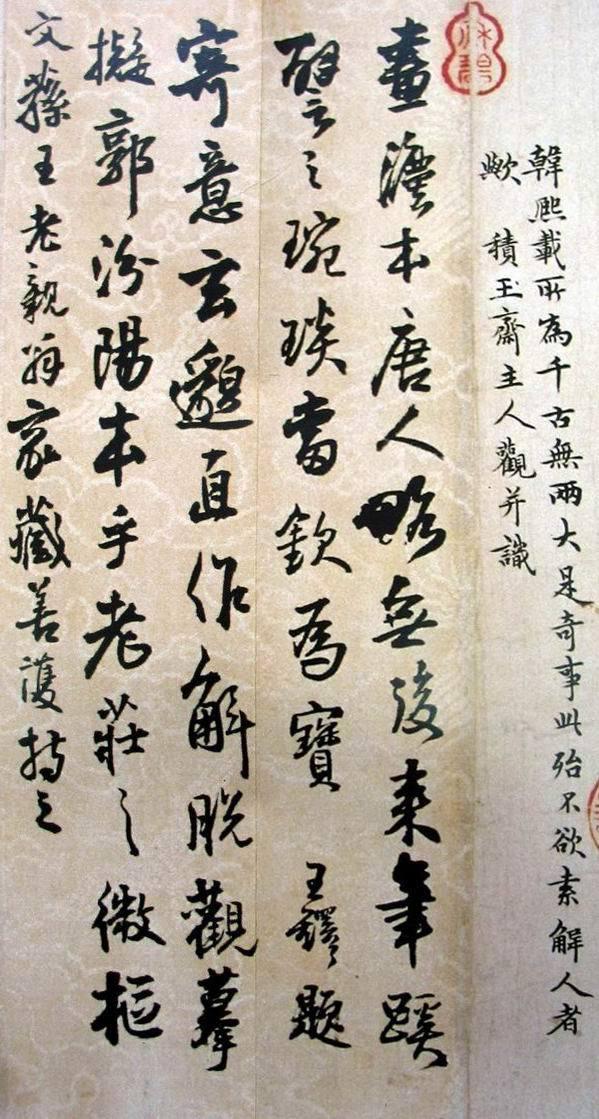 韓熙載所為千古無兩大是奇事此殆不欲索解人者
歟　積玉齋主人觀并識
畫灋本唐人略無後來筆蹊
譬之琬琰當欽為寶　王鐸題
寄意玄邈直作解脫觀摹
擬郭汾陽本乎老莊之微樞
文蓀王老親翁家藏善護持之